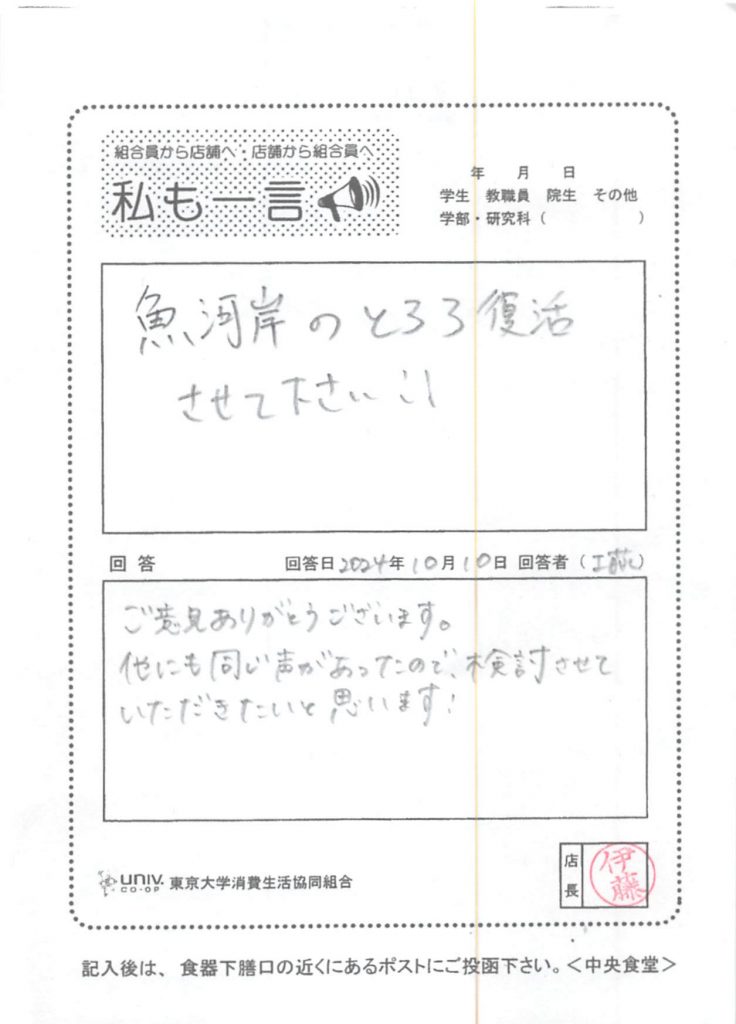 組合員から店舗へ・店舗から組合員へ
私も一言
年 月 日
学生 教職員 院生 その他
学部・研究科（ ）
魚河岸のとろろ復活
させて下さい
回答 回答日2024年10月10日 回答者（工藤）
ご意見ありがとうございます。
他にも同じ声があったので、検討させて
いただきたいと思います！
UNIV. CO-OP 東京大学消費生活協同組合
店長 伊藤
記入後は、食器下膳口の近くにあるポストにご投函下さい。＜中央食堂＞